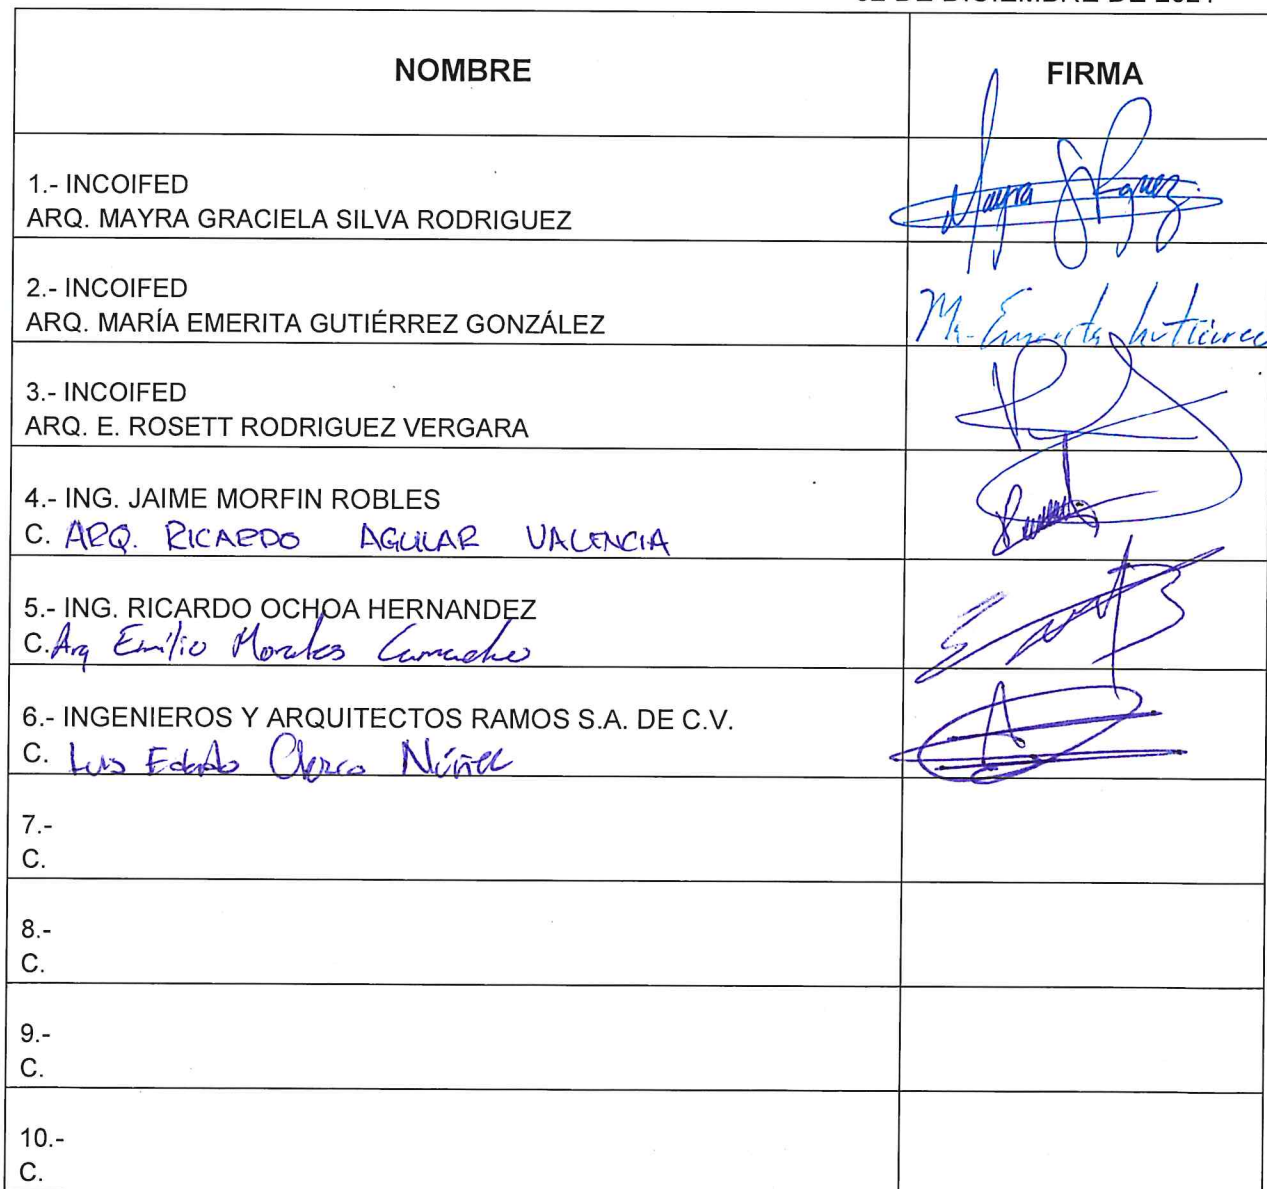 02 DE DICIEMBRE DE 2021
NOMBRE
FIRMA
1.- INCOIFED
ARQ. MAYRA GRACIELA SILVA RODRIGUEZ
Mayra
2.- INCOIFED
ARQ. MARÍA EMERITA GUTIÉRREZ GONZÁLEZ
Ma. Emerita Gutiérrez
3.- INCOIFED
ARQ. E. ROSETT RODRIGUEZ VERGARA
4.- ING. JAIME MORFIN ROBLES
C. ARQ. RICARDO AGUILAR VALENCIA
5.- ING. RICARDO OCHOA HERNANDEZ
C. Arq Emilio Morales Camacho
6.- INGENIEROS Y ARQUITECTOS RAMOS S.A. DE C.V.
C. Luis Eduardo Núñez
7.-
C.
8.-
C.
9.-
C.
10.-
C.